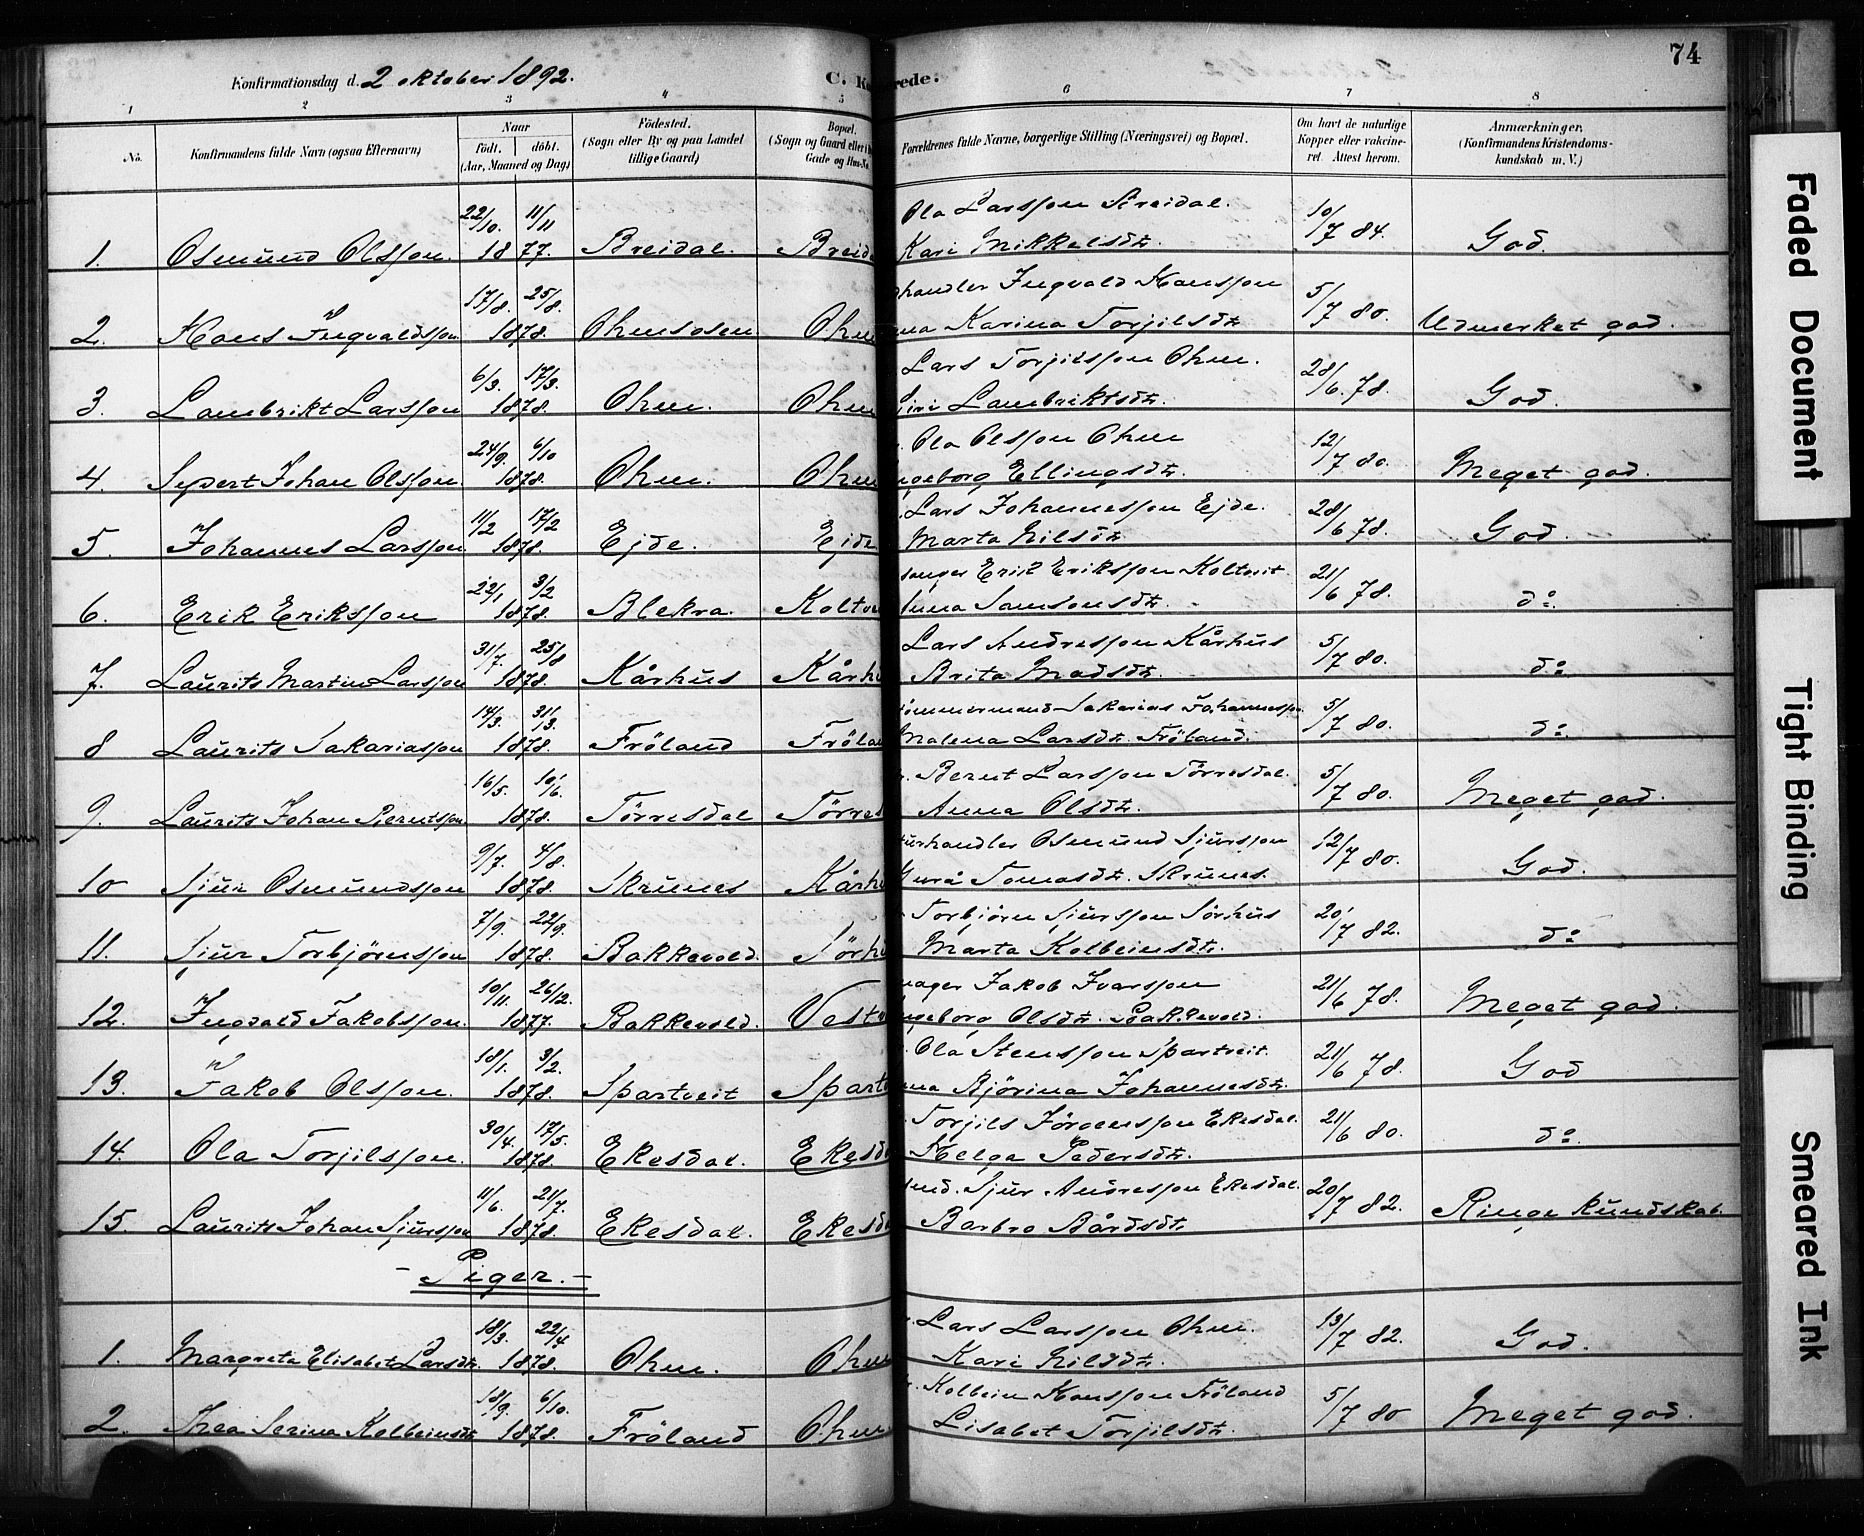 74
Konfirmationsdag d. 2 oktober 1892.
C. Ko rede.
1 2 3 4 5 6 7 8
No. Konfirmandens fulde Navn (ogsaa Efternavn) Naar födt. döbt. (Aar, Maaned og Dag) Födested. (Sogn eller By og paa Landet tillige Gaard) Bopæl. (Sogn og Gaard eller Gade og Hus-No. Forældrenes fulde Navne, borgerlige Stilling (Næringsvei) og Bopæl. Om havt de naturlige Kopper eller vakcineret. Attest herom. Anmærkninger. (Konfirmandens Kristendomskundskab m. V.)
22/10. 11/11 Ola Larsson Breidal. 10/7 84.
1. Osmund Olsson. 1877. Breidal. Breida Kari Mikkelsdtr. God.
17/8. 25/8. handler Ingvald Hansson 5/7 80.
2. Hans Ingvaldsson 1878. Ohmsosen. Ohm na Karina Torjilsdtr Udmerket god.
6/3. 17/3. Lars Torjilsson Ohm. 28/6. 78.
3. Lambrikt Larsson 1878. Ohm. Ohm Siri Lambriktsdtr. God.
24/9. 6/10 Ola Olsson Ohm 12/7 80.
4. Sjvert Johan Olsson. 1878. Ohm. Ohm ngeborg Ellingsdtr. Meget god.
11/2 17/2 Lars Johannesson Ejde. 28/6 78.
5. Johannes Larsson 1878. Ejde. Ejde Marta Nilsdtr God.
22/1 3/2 Erik Eriksson Koltveit 21/6 78.
6. Erik Eriksson 1878. Blekra. Koltve Anna Samsonsdtr. do.
31/7. 25/8 Lars Andresson Kårhus 5/7 80.
7. Laurits Martin Larsson 1878. Kårhus Kårhu Brita Madsdtr. do.
14/3. 31/3. ömmermand Sakarias Johannesson 5/7 80.
8 Laurits Sakariasson 1878. Fröland Frölan Malena Larsdtr. Fröland. do.
16/5. 10/6. Bernt Larsson Törresdal. 5/7 80.
9. Laurits Johan Berntsson 1878. Törresdal Törres Anna Olsdtr. Meget god.
9/7. 4/8. urhandler Osmund Sjursson 12/7 80.
10 Sjur Osmundsson 1878. Skrunes Kårhu Gurå Tomasdtr. Skrunes. God.
7/9. 22/9. Torbjörn Sjursson Sörhus 20/7 82.
11. Sjur Torbjörnsson 1878. Bakkevold. Sörhu Marta Kolbeinsdtr. do
10/11. 26/12. mager Jakob Ivarsson 21/6 78.
12. Ingvald Jakobsson. 1877. Bakkevold. Vest ngeborg Olsdtr. Bakkevold. Meget god.
18/1. 3/2. Ola Stensson Spartveit. 21/6 78.
13. Jakob Olsson. 1878. Spartveit Spart na Björina Johannesdtr. God
30/4. 17/5. Torjils Jörgensson Ekesdal. 21/6 80.
14. Ola Torjilsson. 1878. Ekesdal. Ekesda Helga Pedersdtr. do.
11/6. 21/7. Sjur Andresson Ekesdal. 20/7 82.
15. Laurits Johan Sjursson 1878. Ekesdal. Ekesda Barbro Bårdsdtr. Ringe kundskab.
- Piger. -
18/3. 22/4 Lars Larsson Ohm. 13/7 82.
1. Margreta Elisabet Larsdtr. 1878. Ohm. Ohm Kari Nilsdtr. God.
18/9. 6/10. Kolbein Hansson Fröland 5/7 80
2. Thea Serina Kolbeinsdtr 1878. Fröland Ohm Lisabet Torjilsdtr. Meget god.
Faded Document
Tight Binding
Smeared Ink